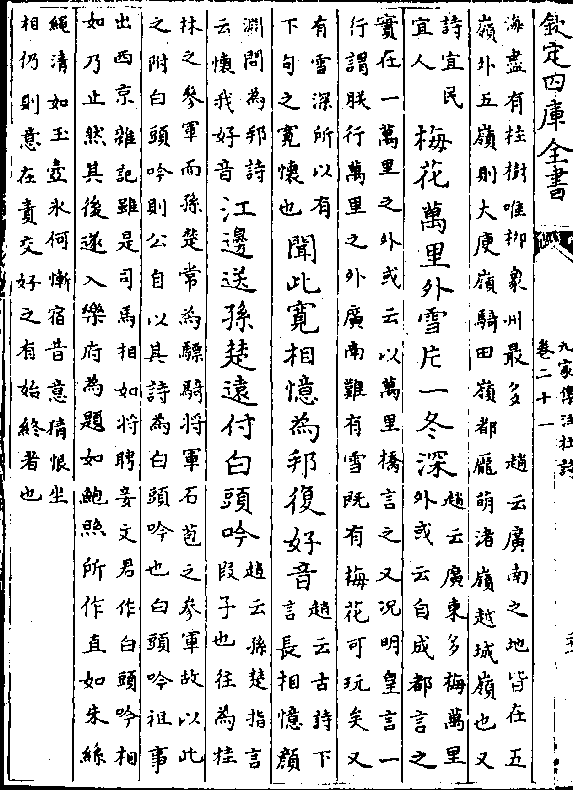 欽定四庫全書
九家集注杜詩
卷二十一
海盡有桂樹唯柳象州最多 趙云廣南之地皆在五
嶺外五嶺則大庾嶺騎田嶺都龐萌渚嶺越城嶺也又
詩宜民
宜人
梅花萬里外雪片一冬深
趙云廣東多梅萬里
外或云自成都言之
實在一萬里之外或云以萬里橋言之又況明皇言一
行謂朕行萬里之外廣南難有雪既有梅花可玩矣又
有雪深所以有
下句之寛懷也
聞此寛相憶為邦復好音
趙云古詩下
言長相憶顔
淵問為邦詩
云懷我好音
江邊送孫楚遠付白頭吟
趙云孫楚指言
段子也往為桂
林之參軍而孫楚常為驃騎將軍石苞之參軍故以此
之附白頭吟則公自以其詩為白頭吟也白頭吟祖事
出西京雜記雖是司馬相如將聘妾文君作白頭吟相
如乃止然其後遂入樂府為題如鮑照所作直如朱絲
繩清如玉壺氷何慚宿昔意猜恨坐
相仍則意在責交好之有始終者也